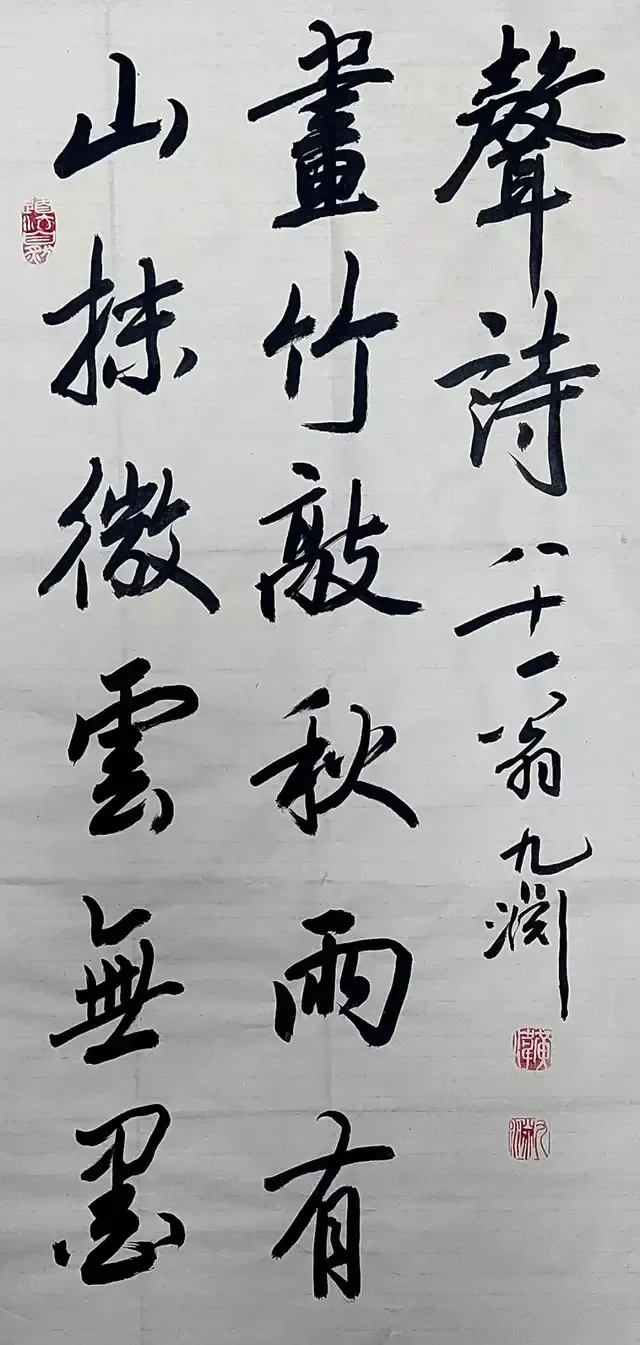 山抹微雲無墨
畫竹敲秋雨有
聲詩 八十一翁九淵
九淵